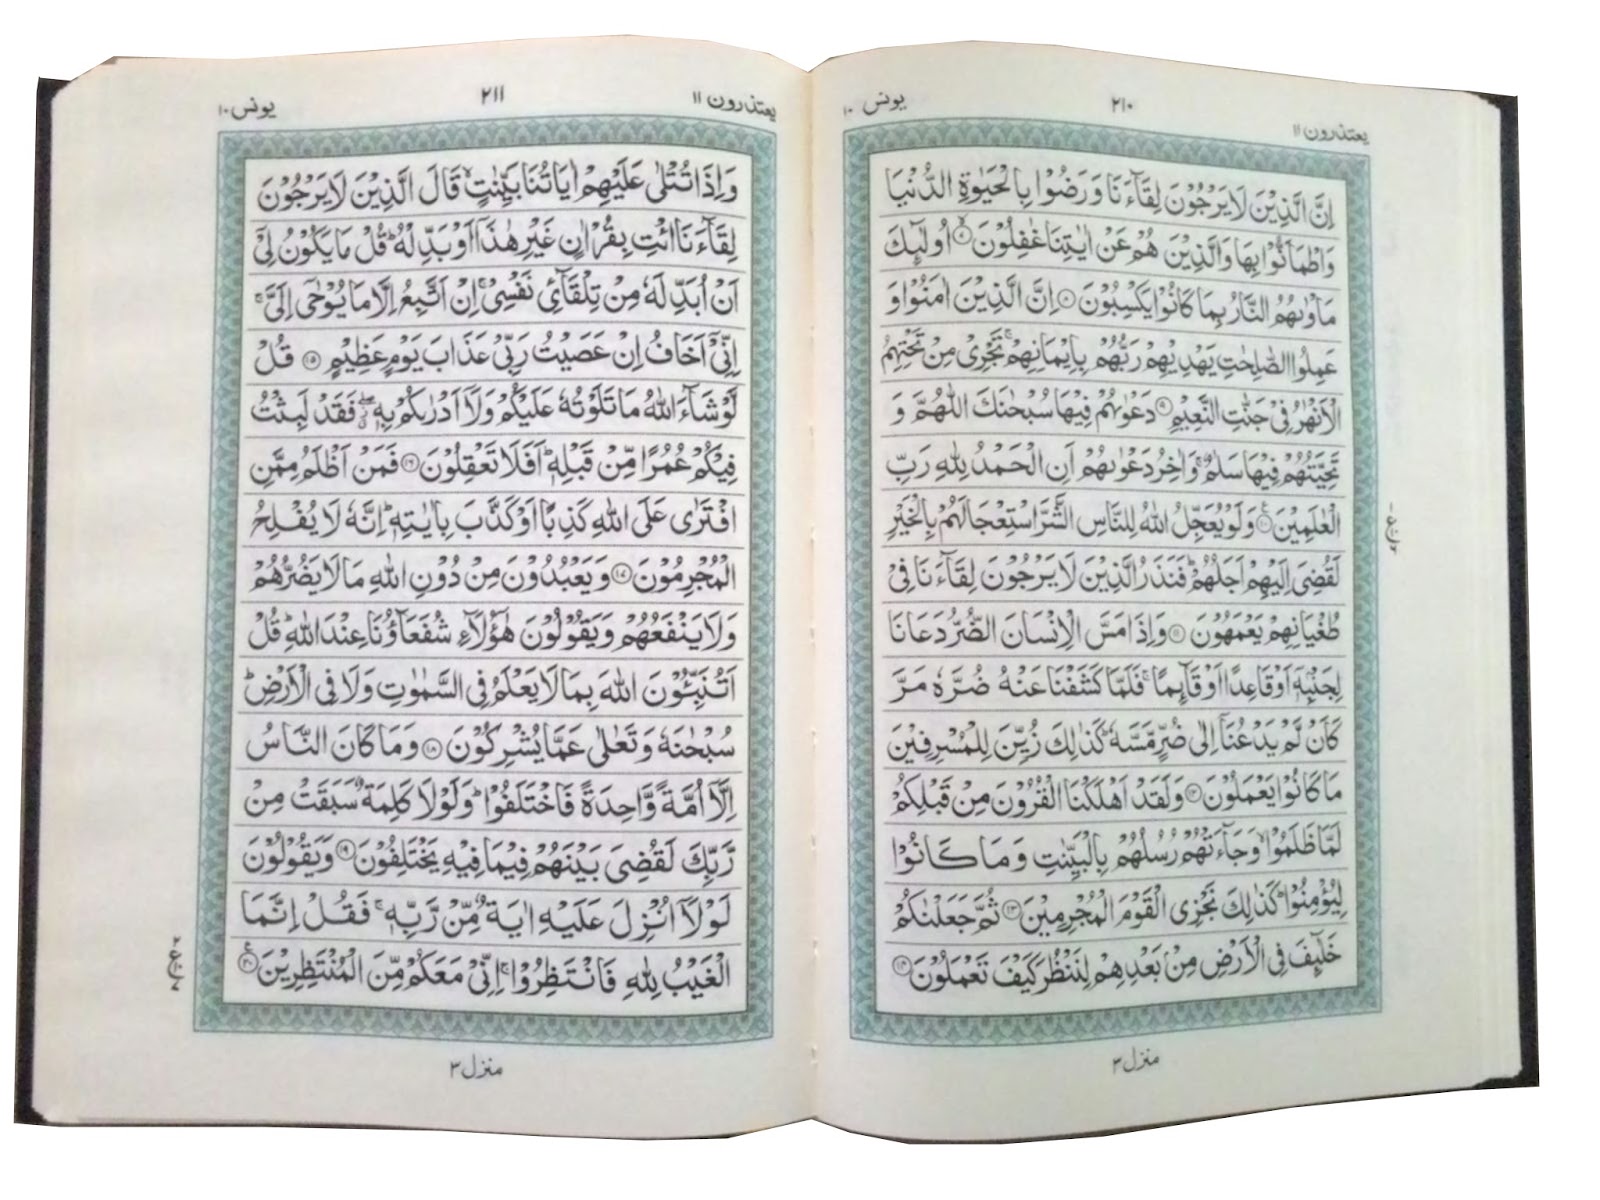 يعتذرون ١١
٢١٠
يونس ١٠
اِنَّ الَّذِيْنَ لَا يَرْجُوْنَ لِقَآءَنَا وَرَضُوْا بِالْحَيٰوةِ الدُّنْيَا
وَاطْمَاَنُّوْا بِهَا وَالَّذِيْنَ هُمْ عَنْ اٰيٰتِنَا غٰفِلُوْنَ ۙ۝٧ اُولٰٓئِكَ
مَاْوٰىهُمُ النَّارُ بِمَا كَانُوْا يَكْسِبُوْنَ ۝٨ اِنَّ الَّذِيْنَ اٰمَنُوْا وَ
عَمِلُوا الصّٰلِحٰتِ يَهْدِيْهِمْ رَبُّهُمْ بِاِيْمَانِهِمْ ۚ تَجْرِيْ مِنْ تَحْتِهِمُ
الْاَنْهٰرُ فِيْ جَنّٰتِ النَّعِيْمِ ۝٩ دَعْوٰىهُمْ فِيْهَا سُبْحٰنَكَ اللّٰهُمَّ وَ
تَحِيَّتُهُمْ فِيْهَا سَلٰمٌ ۚ وَاٰخِرُ دَعْوٰىهُمْ اَنِ الْحَمْدُ لِلّٰهِ رَبِّ
الْعٰلَمِيْنَ ۝١٠ وَلَوْ يُعَجِّلُ اللّٰهُ لِلنَّاسِ الشَّرَّ اسْتِعْجَالَهُمْ بِالْخَيْرِ
لَقُضِيَ اِلَيْهِمْ اَجَلُهُمْ ؕ فَنَذَرُ الَّذِيْنَ لَا يَرْجُوْنَ لِقَآءَنَا فِيْ
طُغْيَانِهِمْ يَعْمَهُوْنَ ۝١١ وَاِذَا مَسَّ الْاِنْسَانَ الضُّرُّ دَعَانَا
لِجَنْۢبِهٖٓ اَوْ قَاعِدًا اَوْ قَآئِمًا ۚ فَلَمَّا كَشَفْنَا عَنْهُ ضُرَّهٗ مَرَّ
كَاَنْ لَّمْ يَدْعُنَآ اِلٰى ضُرٍّ مَّسَّهٗ ؕ كَذٰلِكَ زُيِّنَ لِلْمُسْرِفِيْنَ
مَا كَانُوْا يَعْمَلُوْنَ ۝١٢ وَلَقَدْ اَهْلَكْنَا الْقُرُوْنَ مِنْ قَبْلِكُمْ
لَمَّا ظَلَمُوْا ۙ وَجَآءَتْهُمْ رُسُلُهُمْ بِالْبَيِّنٰتِ وَمَا كَانُوْا
لِيُؤْمِنُوْا ؕ كَذٰلِكَ نَجْزِي الْقَوْمَ الْمُجْرِمِيْنَ ۝١٣ ثُمَّ جَعَلْنٰكُمْ
خَلٰٓئِفَ فِي الْاَرْضِ مِنْۢ بَعْدِهِمْ لِنَنْظُرَ كَيْفَ تَعْمَلُوْنَ ۝١٤
منزل ٣
يعتذرون ١١
٢١١
يونس ١٠
وَاِذَا تُتْلٰى عَلَيْهِمْ اٰيَاتُنَا بَيِّنٰتٍ ۙ قَالَ الَّذِيْنَ لَا يَرْجُوْنَ
لِقَآءَنَا ائْتِ بِقُرْاٰنٍ غَيْرِ هٰذَآ اَوْ بَدِّلْهُ ؕ قُلْ مَا يَكُوْنُ لِيْٓ
اَنْ اُبَدِّلَهٗ مِنْ تِلْقَآئِ نَفْسِيْ ۚ اِنْ اَتَّبِعُ اِلَّا مَا يُوْحٰٓى اِلَيَّ ۚ
اِنِّيْٓ اَخَافُ اِنْ عَصَيْتُ رَبِّيْ عَذَابَ يَوْمٍ عَظِيْمٍ ۝١٥ قُلْ
لَّوْ شَآءَ اللّٰهُ مَا تَلَوْتُهٗ عَلَيْكُمْ وَلَآ اَدْرٰىكُمْ بِهٖ ۖ فَقَدْ لَبِثْتُ
فِيْكُمْ عُمُرًا مِّنْ قَبْلِهٖ ؕ اَفَلَا تَعْقِلُوْنَ ۝١٦ فَمَنْ اَظْلَمُ مِمَّنِ
افْتَرٰى عَلَى اللّٰهِ كَذِبًا اَوْ كَذَّبَ بِاٰيٰتِهٖ ؕ اِنَّهٗ لَا يُفْلِحُ
الْمُجْرِمُوْنَ ۝١٧ وَيَعْبُدُوْنَ مِنْ دُوْنِ اللّٰهِ مَا لَا يَضُرُّهُمْ
وَلَا يَنْفَعُهُمْ وَيَقُوْلُوْنَ هٰٓؤُلَآءِ شُفَعَآؤُنَا عِنْدَ اللّٰهِ ؕ قُلْ
اَتُنَبِّئُوْنَ اللّٰهَ بِمَا لَا يَعْلَمُ فِي السَّمٰوٰتِ وَلَا فِي الْاَرْضِ ؕ
سُبْحٰنَهٗ وَتَعٰلٰى عَمَّا يُشْرِكُوْنَ ۝١٨ وَمَا كَانَ النَّاسُ
اِلَّآ اُمَّةً وَّاحِدَةً فَاخْتَلَفُوْا ؕ وَلَوْلَا كَلِمَةٌ سَبَقَتْ مِنْ
رَّبِّكَ لَقُضِيَ بَيْنَهُمْ فِيْمَا فِيْهِ يَخْتَلِفُوْنَ ۝١٩ وَيَقُوْلُوْنَ
لَوْلَآ اُنْزِلَ عَلَيْهِ اٰيَةٌ مِّنْ رَّبِّهٖ ۚ فَقُلْ اِنَّمَا
الْغَيْبُ لِلّٰهِ فَانْتَظِرُوْا ۚ اِنِّيْ مَعَكُمْ مِّنَ الْمُنْتَظِرِيْنَ ۝٢٠
منزل ٣